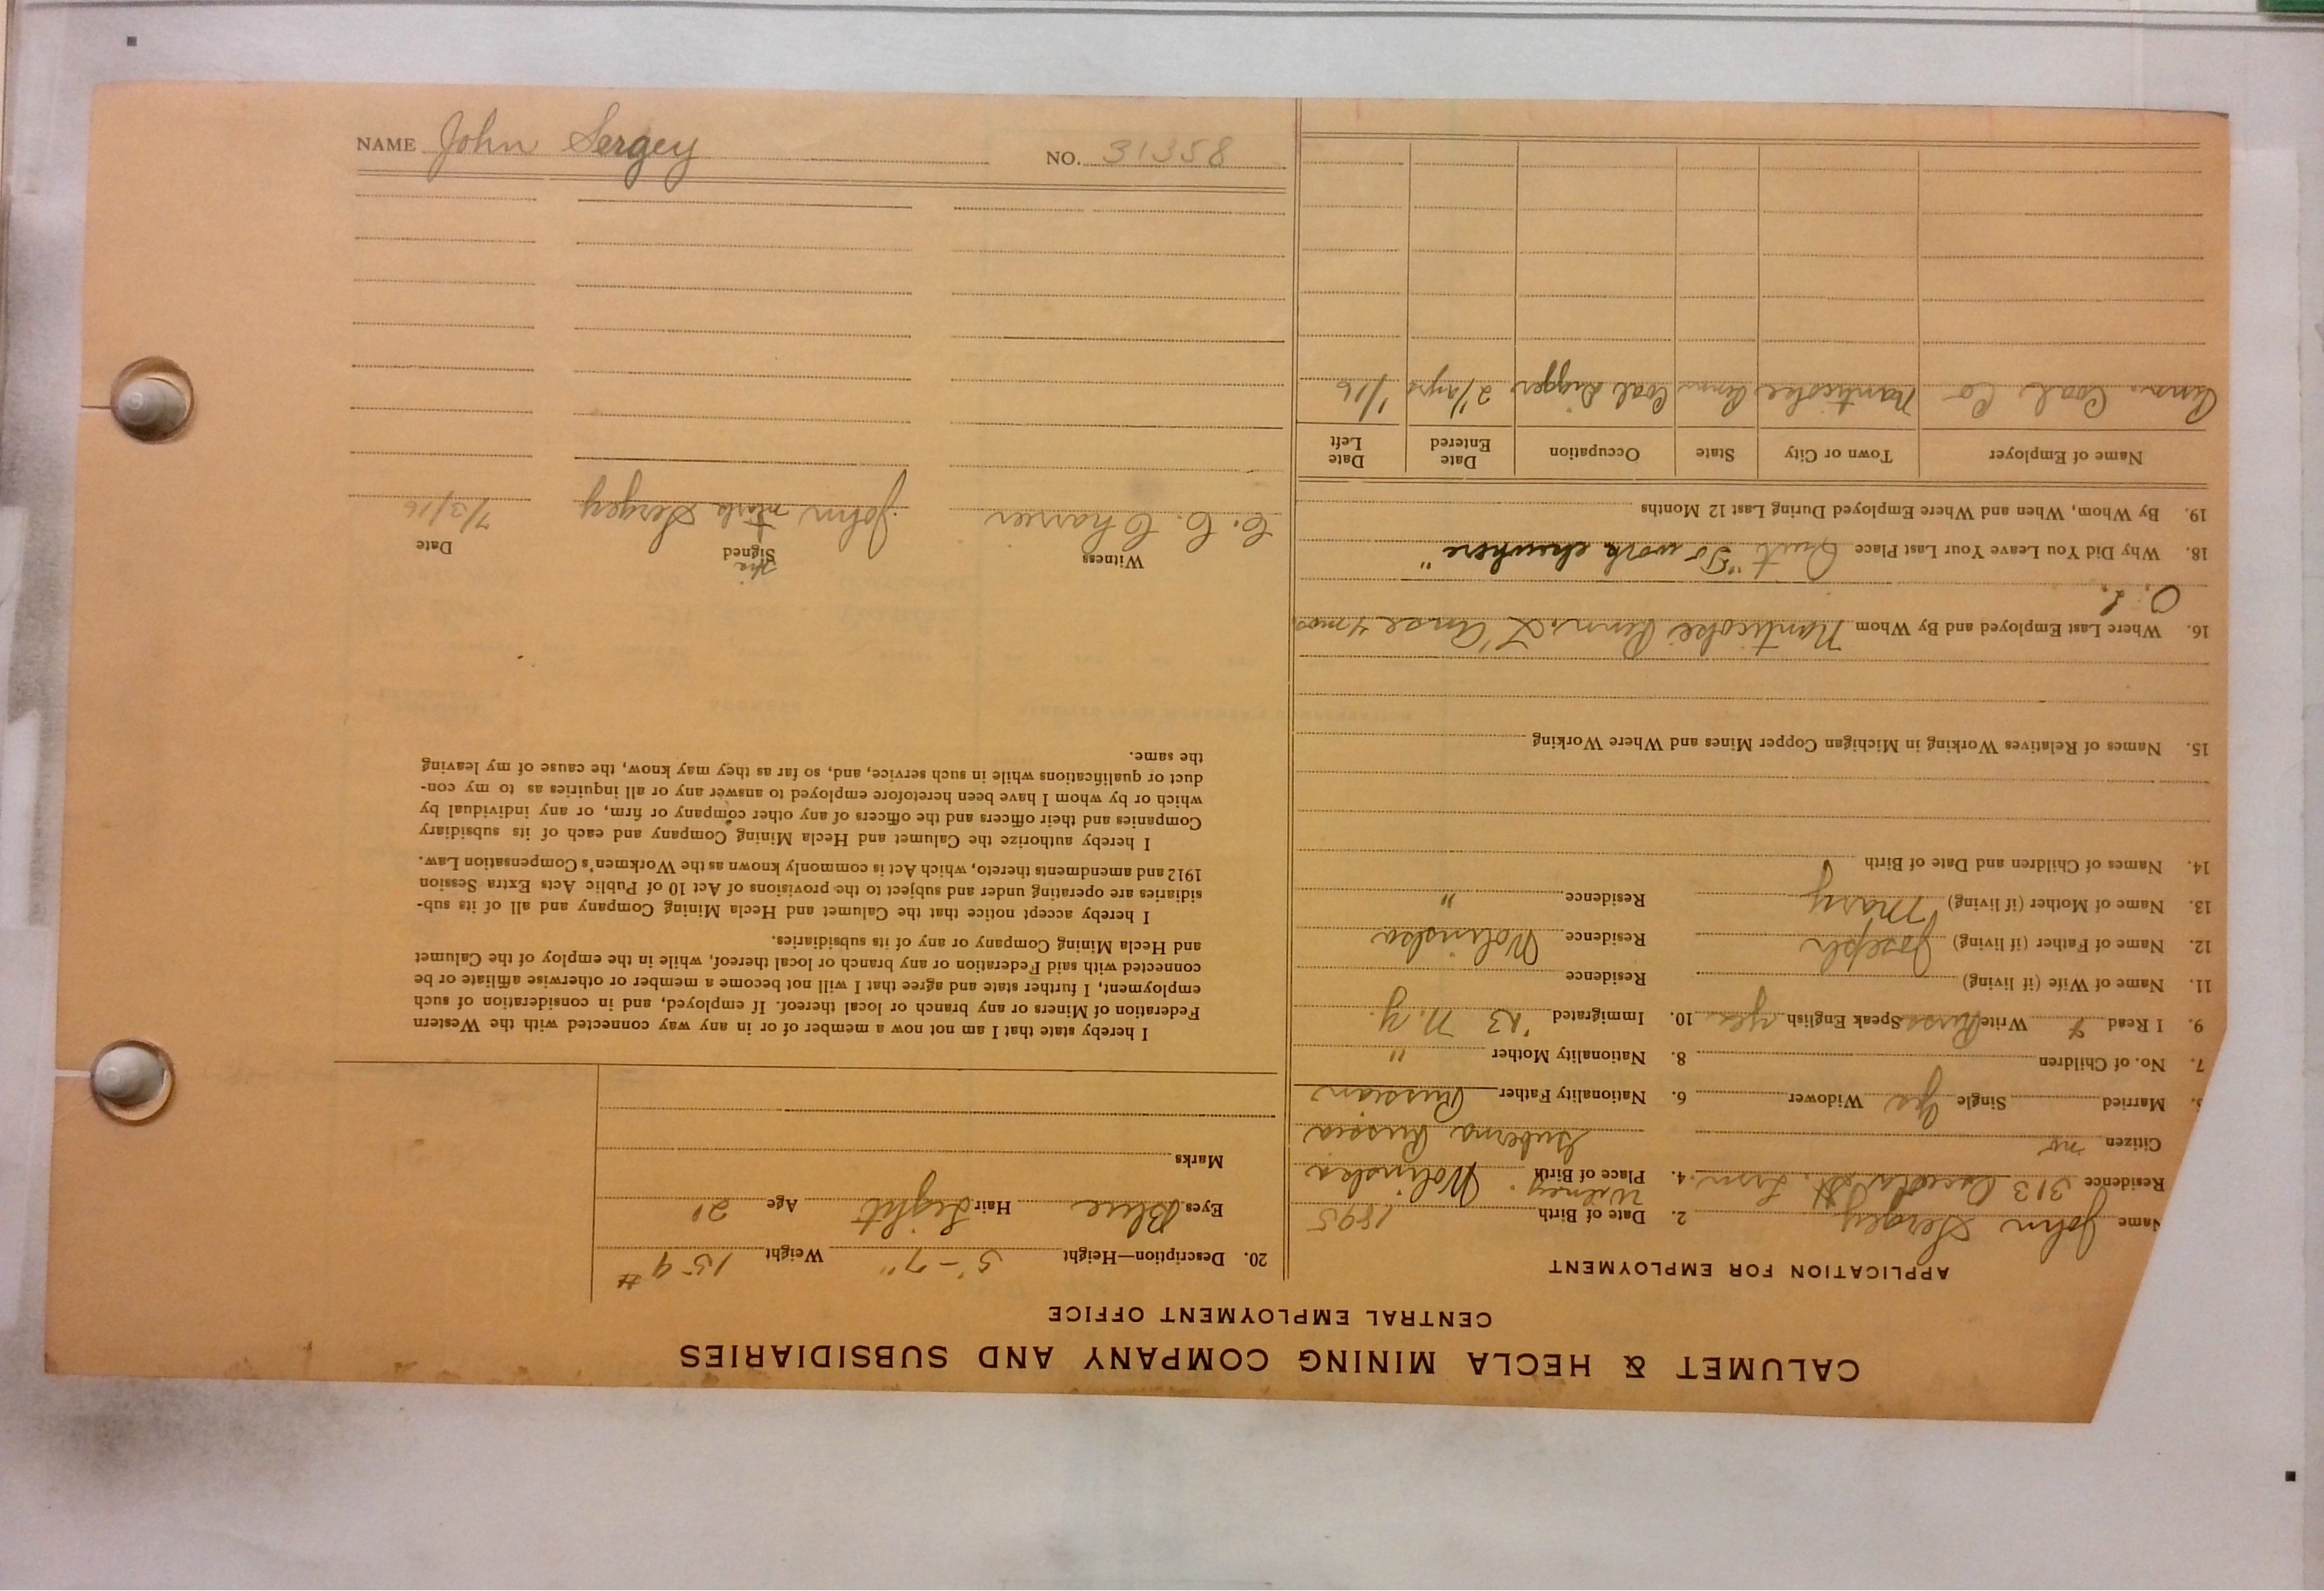 NAME John Sergey NO. 31358
CALUMET & HECLA MINING COMPANY AND SUBSIDIARIES
CENTRAL EMPLOYMENT OFFICE
APPLICATION FOR EMPLOYMENT
Name John Sergey 2. Date of Birth 1895
Residence 313 Osceola St. Lrm. 4. Place of Birth Wolinska
Citizen no Guberna Russia
Married Single Yes Widower 6. Nationality Father Russian
7. No. of Children 8. Nationality Mother "
9. I Read & Write Russ Speak English yes 10. Immigrated '13 N.Y.
11. Name of Wife (if living) Residence
12. Name of Father (if living) Joseph Residence Wolinska
13. Name of Mother (if living) Mary Residence "
14. Names of Children and Date of Birth
15. Names of Relatives Working in Michigan Copper Mines and Where Working
16. Where Last Employed and By Whom Nanticoke Penn. L'Anse 4 mos.
18. Why Did You Leave Your Last Place Quit "To work elsewhere"
19. By Whom, When and Where Employed During Last 12 Months
Name of Employer Town or City State Occupation Date Entered Date Left
Penn. Coal Co Nanticoke Penna Coal Digger 2 1/2 yrs 1/16
20. Description—Height 5'-7" Weight 159 #
Eyes Blue Hair Light Age 21
Marks
I hereby state that I am not now a member of or in any way connected with the Western
Federation of Miners or any branch or local thereof. If employed, and in consideration of such
employment, I further state and agree that I will not become a member or otherwise affiliate or be
connected with said Federation or any branch or local thereof, while in the employ of the Calumet
and Hecla Mining Company or any of its subsidiaries.
I hereby accept notice that the Calumet and Hecla Mining Company and all of its sub-
sidiaries are operating under and subject to the provisions of Act 10 of Public Acts Extra Session
1912 and amendments thereto, which Act is commonly known as the Workmen's Compensation Law.
I hereby authorize the Calumet and Hecla Mining Company and each of its subsidiary
Companies and their officers and the officers of any other company or firm, or any individual by
which or by whom I have been heretofore employed to answer any or all inquiries as to my con-
duct or qualifications while in such service, and, so far as they may know, the cause of my leaving
the same.
Witness Signed Date
his
C. C. Charrier John Sergey 7/3/16
mark